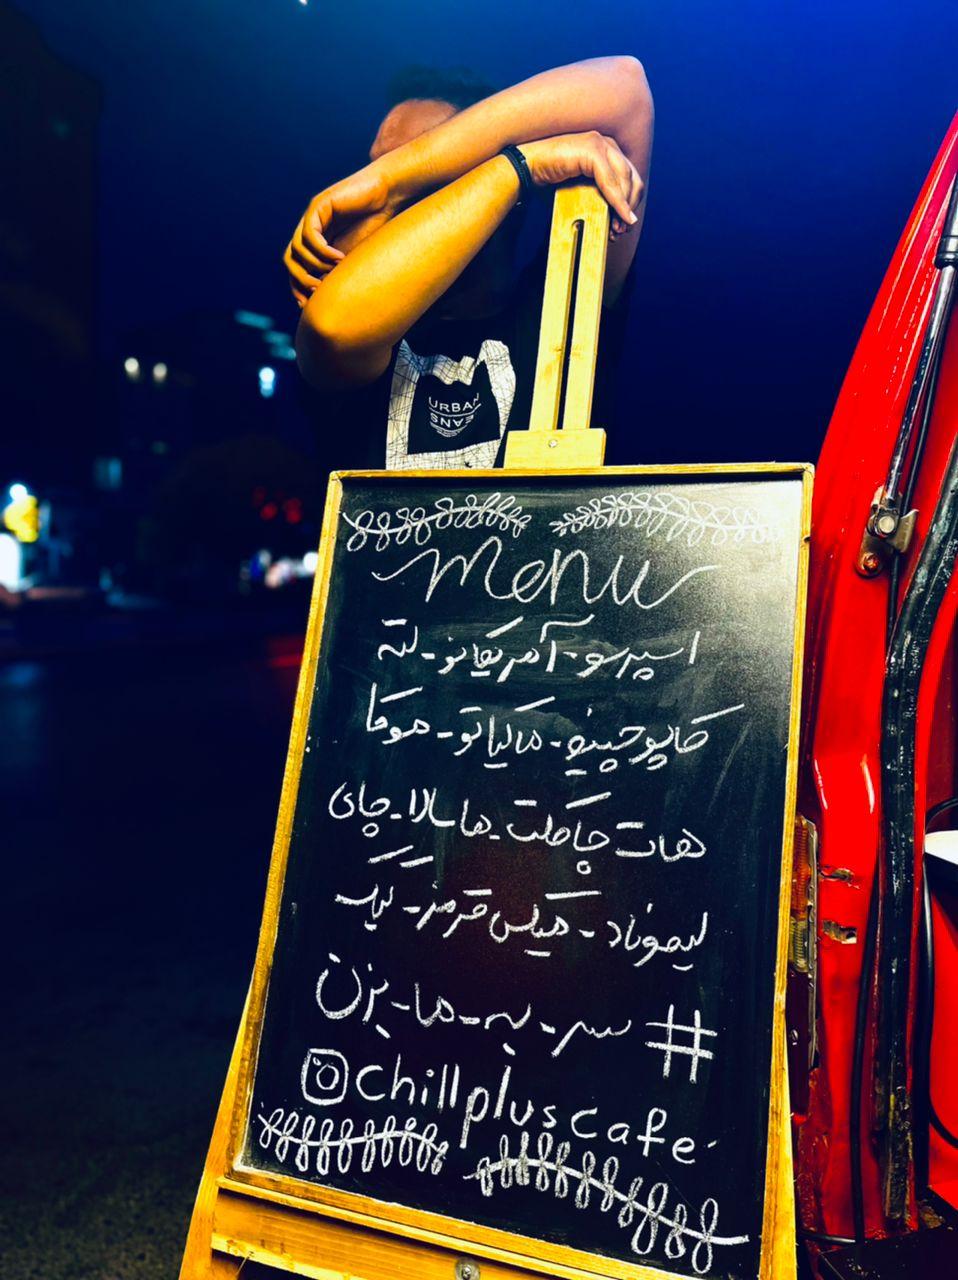 URBAN
JEANS
Menu
اسپرسو - آمریکانو - لته
کاپوچینو - ماکیاتو - موکا
هات چاکلت - ماسالا - چای
لیموناد - میکس قرمز - کیک
#سر_به_ما_بزن
@chillpluscafe